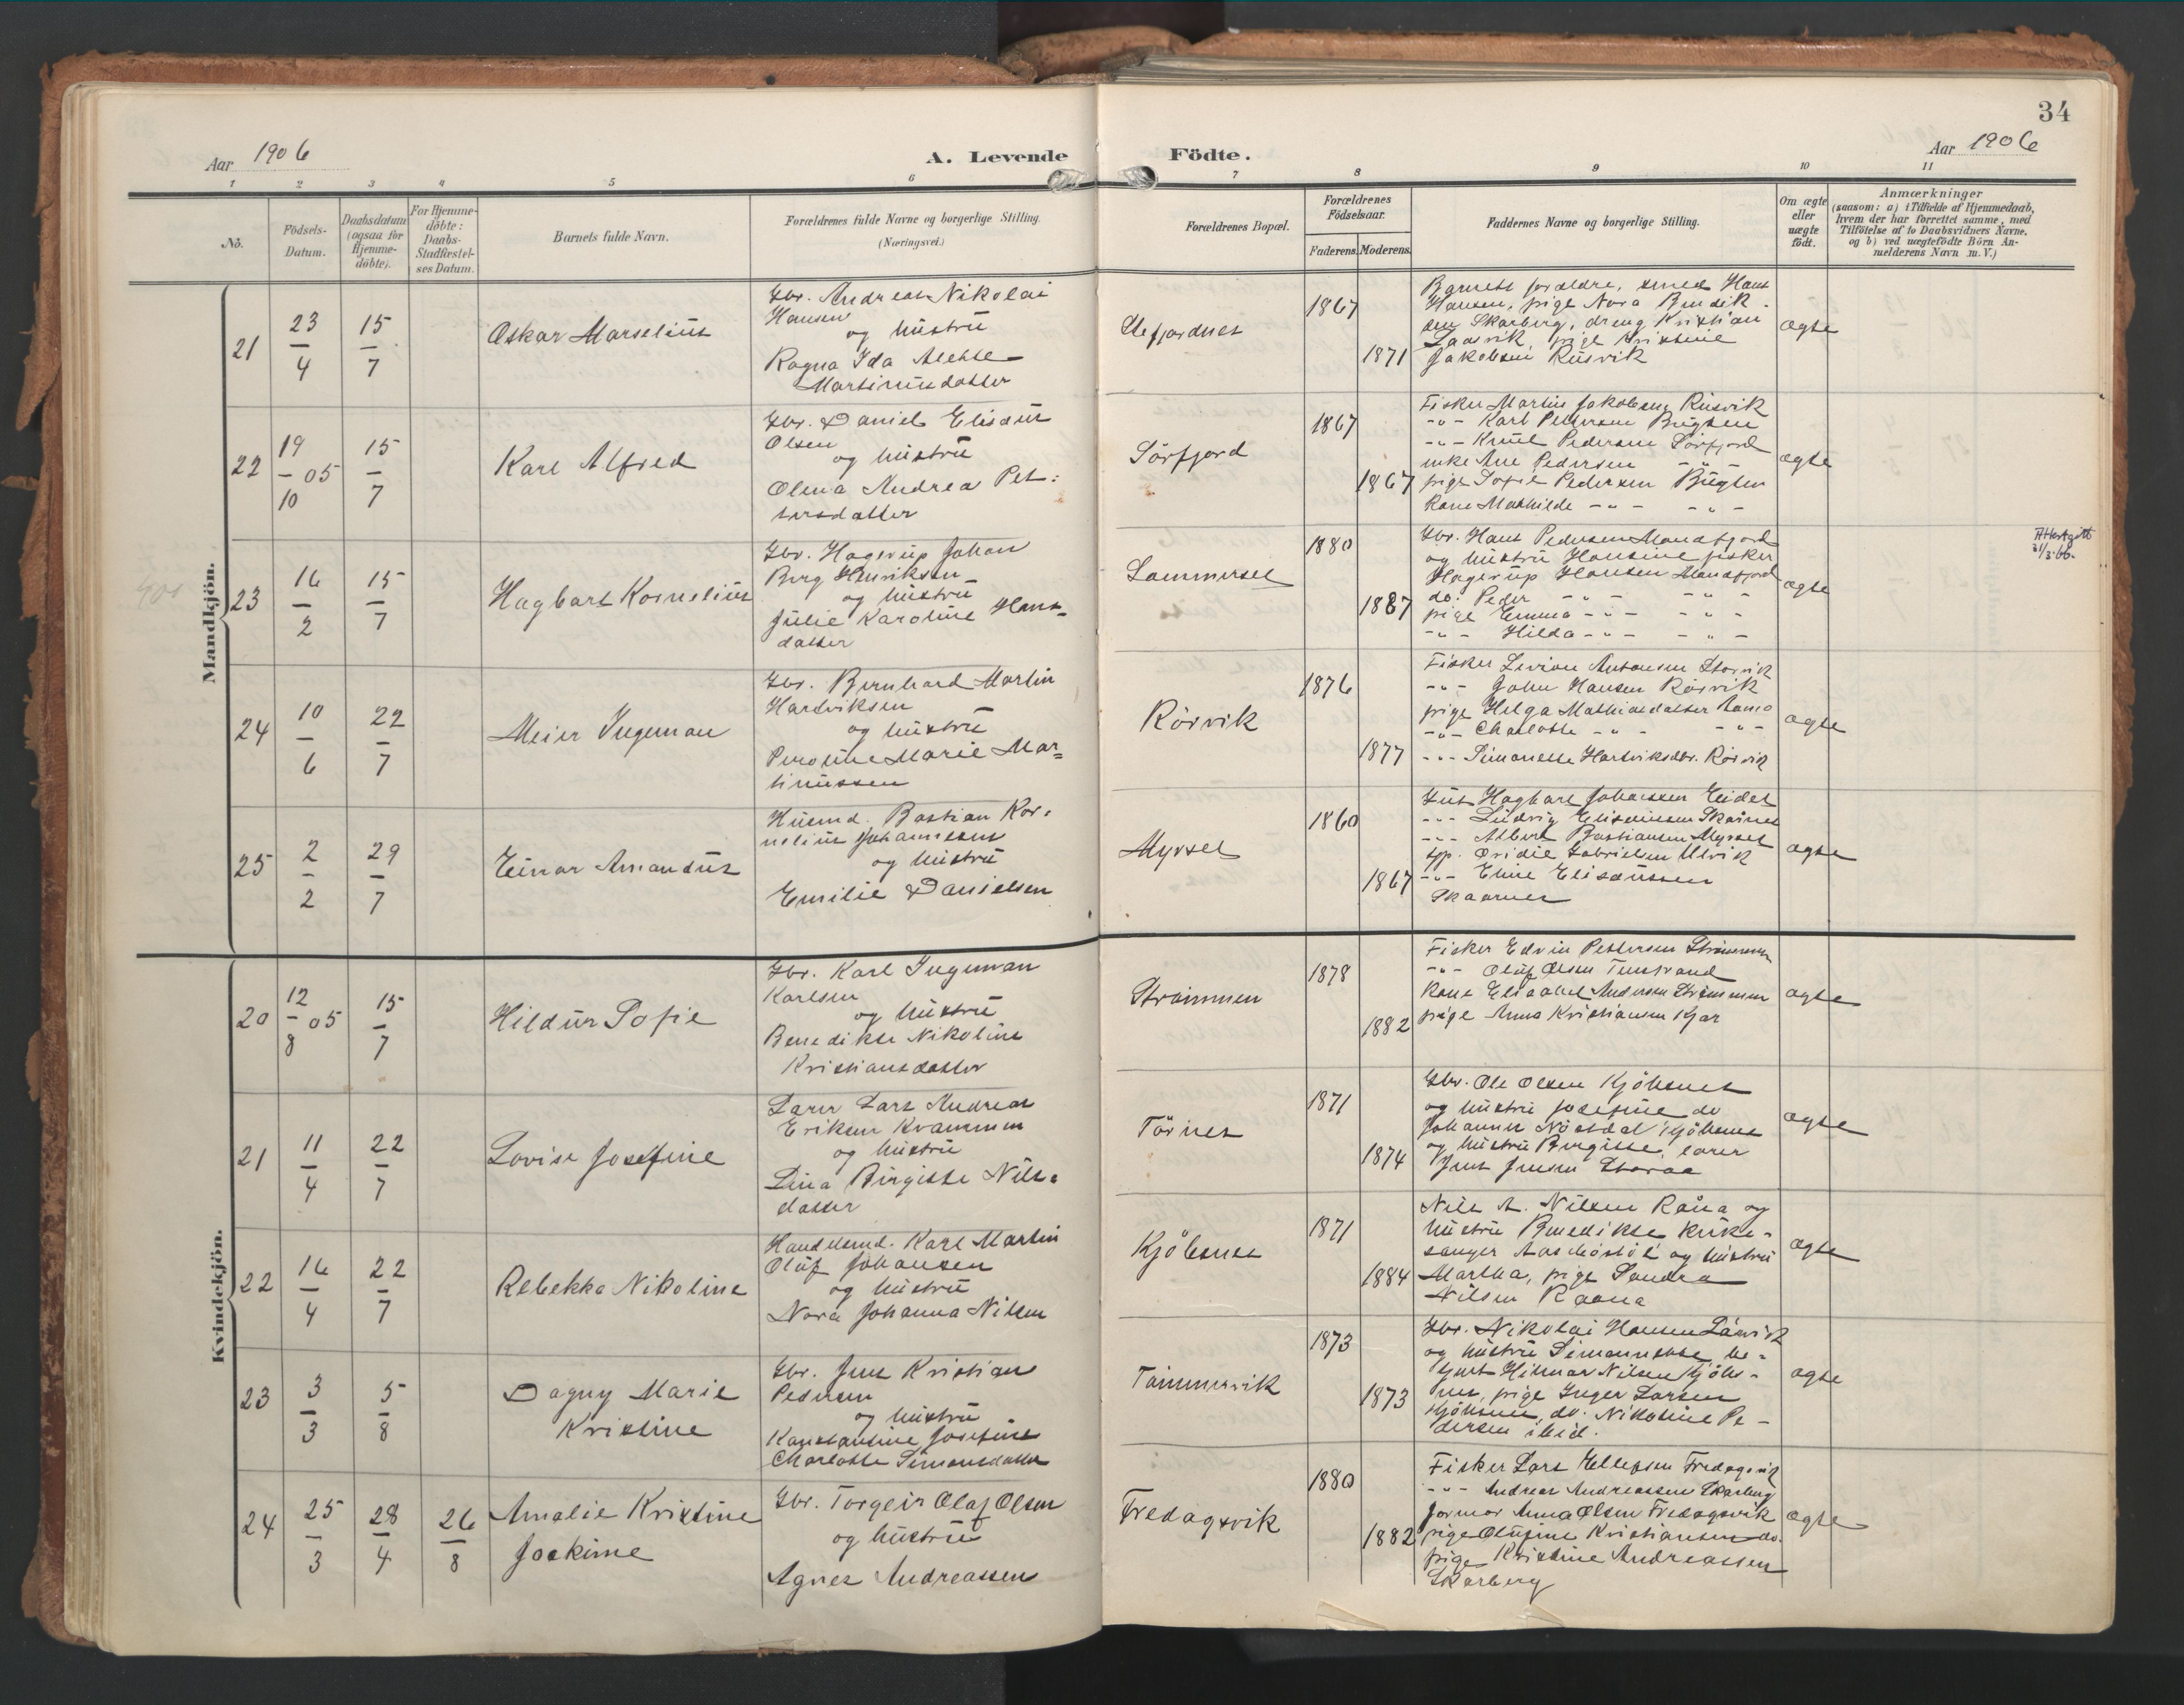 34
Aar 1906
A. Levende Födte.
Aar 1906
1 2 3 4 5 6 7 8 9 10 11
Nö.
Födsels-
Datum.
Daabsdatum
(ogsaa for
Hjemme-
döbte).
For Hjemme-
döbte:
Daabs-
Stadfæstel-
ses Datum.
Barnets fulde Navn.
Forældrenes fulde Navne og borgerlige Stilling.
(Næringsvei.)
Forældrenes Bopæl.
Forældrenes
Födselsaar.
Faderens. Moderens.
Faddernes Navne og borgerlige Stilling.
Om ægte
eller
uægte
födt.
Anmærkninger
(saasom: a) i Tilfælde af Hjemmedaab,
hvem der har forrettet samme, med
Tilföielse af to Daabsvidners Navne,
og b) ved uægtefödte Börn An-
melderens Navn m. V.)
Mandkjön.
21
23/4
15/7
Oskar Marselius
Gbr. Andreas Nikolai
Hansen
og hustru
Ragna Ida Alette
Martinusdatter
Elefjordnes
1867
1871
Barnets forældre, smed Hans
Hansen, pige Nora Bendik-
sen Skarberg, dreng Kristian
Laasvik, pige Kristine
Jakobsen Rusvik
ægte
22
19/10 - 05
15/7
Karl Alfred
Gbr. Daniel Elisæus
Olsen
og hustru
Olena Andrea Pet:
tersdatter
Sörfjord
1867
1867
Fisker Martin Jakobsen Rusvik
-"- Karl Pedersen Bugten
-"- Knut Pedersen Sörfjord
enke Ane Pedersen -"-
pige Sofie Pedersen Bugten
Kone Mathilde -"- -"-
ægte
23
16/2
15/7
Hagbart Kornelius
Gbr. Hagerup Johan
Berg Henriksen
og hustru
Julie Karoline Hans-
datter
Sommerset
1880
1887
Gbr. Hans Pedersen Mandfjord
og hustru Hansine, fisker
Hagerup Hansen Mandfjord
do. Peder -"- -"-
pige Emma -"- -"-
-"- Hilda -"- -"-
ægte
Attest gitt
31/3-66.
24
10/6
22/7
Meier Ingeman
Gbr. Bernhard Martin
Hartviksen
og hustru
Peroline Marie Mar=
tinussen
Rörvik
1876
1877
Fisker Levion Antonsen Storvik
-"- John Hansen Rörvik
pige Helga Mathiasdatter
-"- Charlotte -"- -"-
-"- Simonette Hartviksdtr. Rörvik
ægte
25
2/2
29/7
Einar Amandus
Husmd. Bastian Kor-
nelius Johannesen
og hustru
Emilie Danielsen
Myrset
1860
1867
Gut Hagbart Johansen Eidet
-"- Ludvig Elisæussen Skarnes
-"- Albert Bastiansen Myrset
Ovidie Gabrielsen Ulvik
-"- Eline Elisæussen
Skaarnes
ægte
Kvindekjön.
20
12/8 - 05
15/7
Hildur Sofie
Gbr. Karl Ingeman
Karlsen
og hustru
Benedikte Nikoline
Kristiansdatter
Strömmen
1878
1882
Fisker Edvin Pettersen Strömmen
-"- Oluf Olsen
Kone Elisabet Andersen Strömmen
pige Anna Kristiansen Kjær
ægte
21
11/4
22/7
Lovise Josefine
Lærer Lars Andreas
Eriksen Krammen
og hustru
Lina Birgitte Nils-
datter
Törnes
1871
1874
Gbr. Ole Olsen Kjöbsnes
og hustru Josefine do
Johannes Kjöbsnes
og hustru Birgitte, lærer
Jens Jensen Storaa
ægte
22
16/4
22/7
Rebekka Nikoline
Handelsmd. Karl Martin
Oluf Johansen
og hustru
Nora Johanna Nilsen
Kjöbsnes
1871
1884
Nils A. Nilsen Råna og
hustru Benedikte, kirke-
sanger og hustru
Martha, pige Sandra
Nilsen Raana
ægte
23
3/3
5/8
Dagny Marie
Kristine
Gbr. Jens Kristian
Pedersen
og hustru
Konstantine Josefine
Charlotte Simonsdatter
Tömmervik
1873
1873
Gbr. Nikolai Hansen Låsvik
og hustru Simonette, be-
tjent Hilmar Nilsen Kjöbs-
nes, pige Inger Larsen
Kjöbsnes, do. Nikoline Pe-
dersen ibid.
ægte
24
25/3
28/4
26/8
Amalie Kristine
Joakime
Gbr. Torgeir Olaf Olsen
og hustru
Agnes Andreassen
Fredagsvik
1880
1882
Fisker Lars Ellefsen Fredagsvik
-"- Andreas Andreassen Skarberg
Jormor Anna Olsen Fredagsvik
pige Olufine Kristiansen do.
pige Kristine Andreassen
Skarberg
ægte